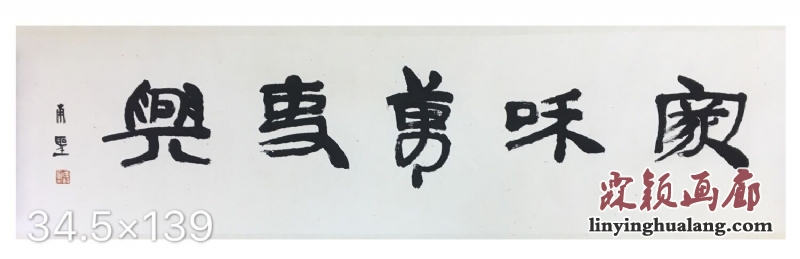 家咊萬事興
34.5×139
霖颖画廊
linyinghualang.com